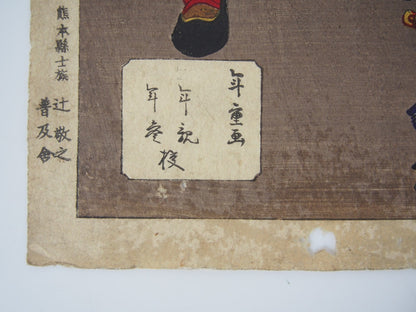 年重画
年親
年参校
熊本縣士族
辻敬之
普及舍